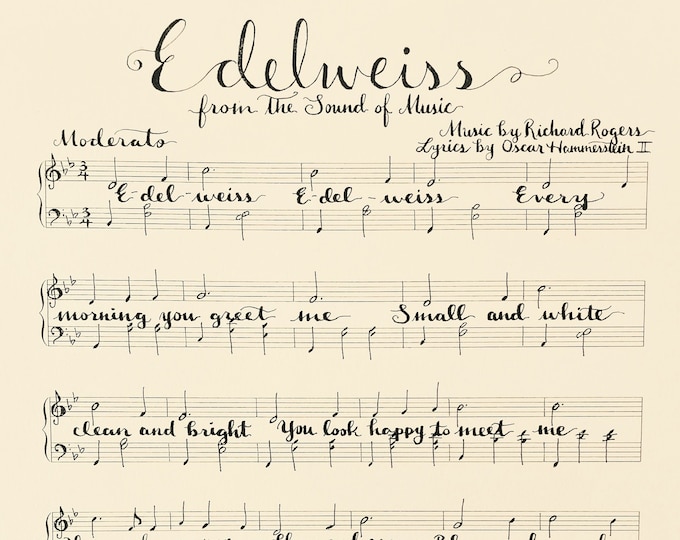 Edelweiss
from the Sound of Music
Music by Richard Rogers
Moderato
Lyrics by Oscar Hammerstein II
3/4
E-del-weiss E-del-weiss Every
3/4
morning you greet me Small and white
clean and bright You look happy to meet me